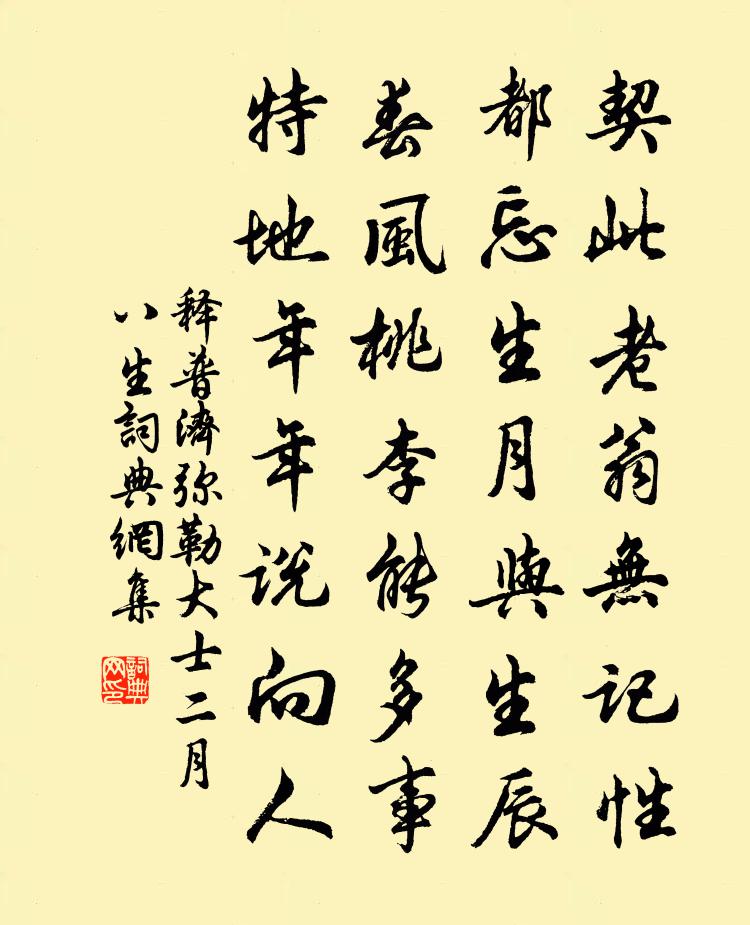 契此老翁無記性
都忘生月與生辰
春風桃李能多事
特地年年説向人
释普濟弥勒大士二月
八生詞典網集
詞典網印